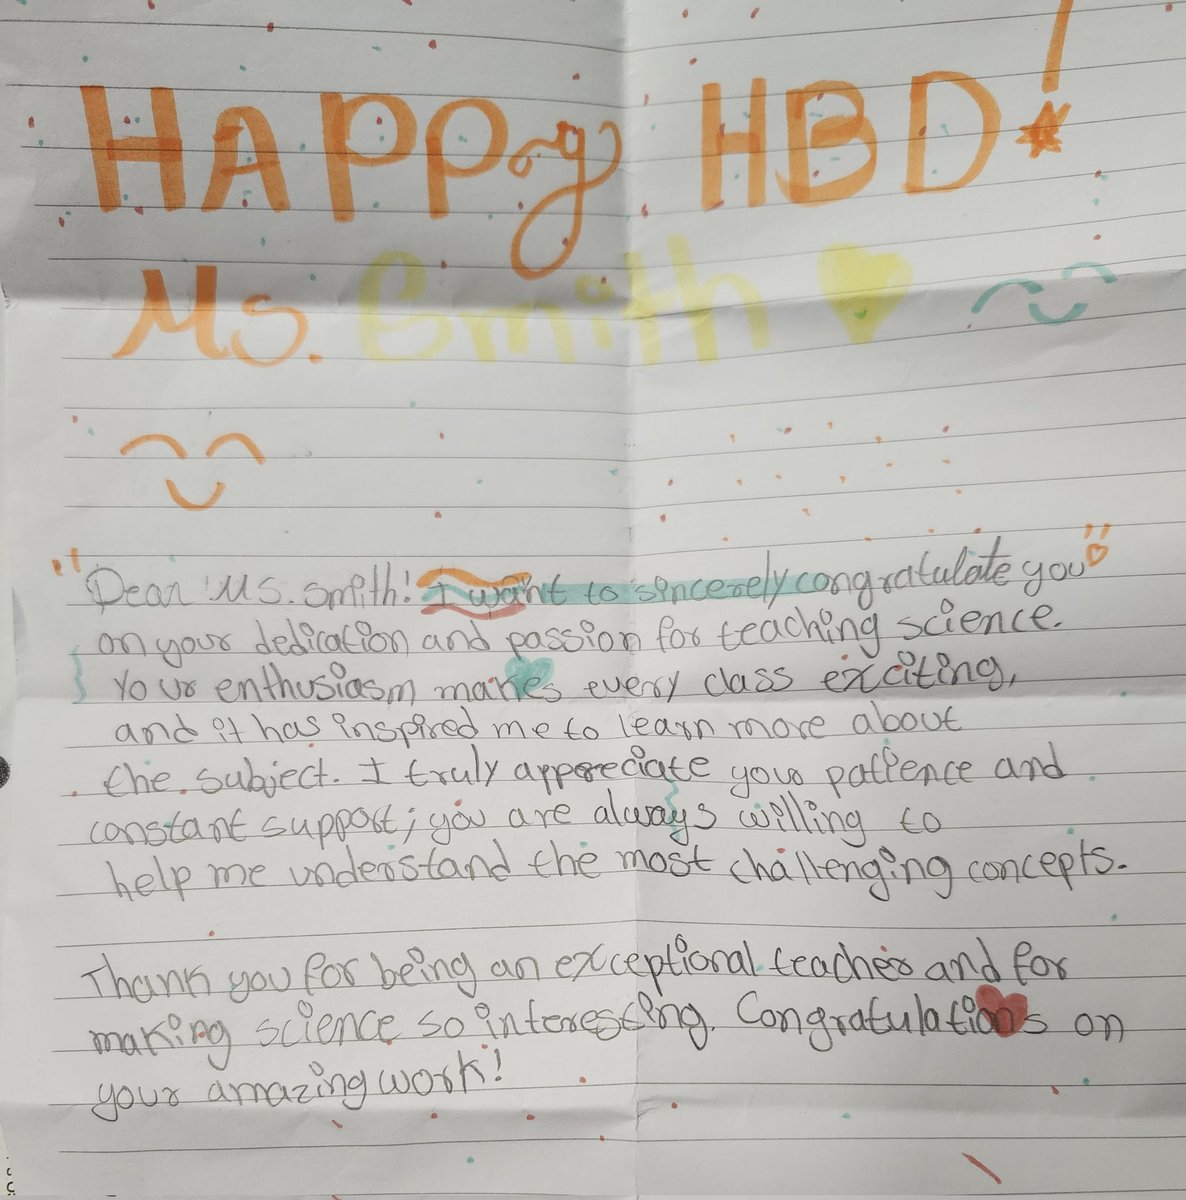 HAPPy HBD!
Ms. Smith
"Dear Ms. Smith! I want to sincerely congratulate you"
on your dedication and passion for teaching science.
Your enthusiasm makes every class exciting,
and it has inspired me to learn more about
the subject. I truly appreciate your patience and
constant support; you are always willing to
help me understand the most challenging concepts.
Thank you for being an exceptional teacher and for
making science so interesting. Congratulations on
your amazing work!